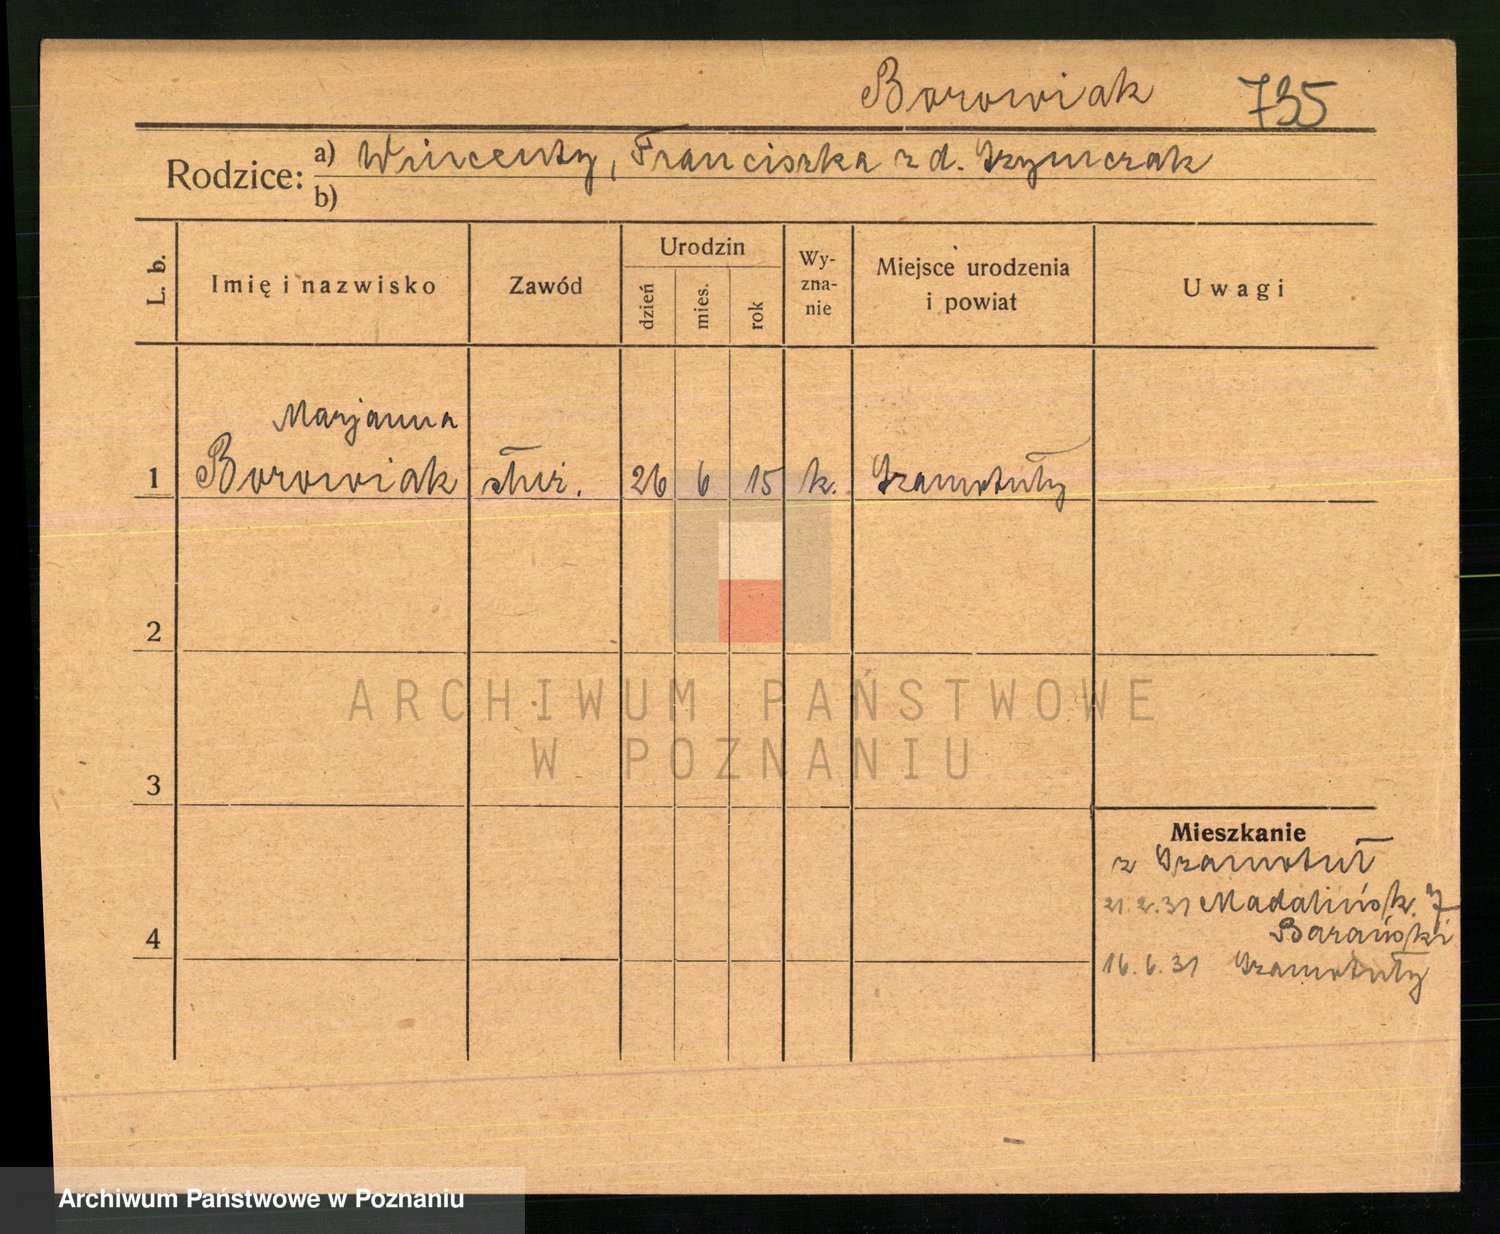 Borowiak 735
Rodzice: a) Wincenty, Franciszka z d. Szymczak
b)
L. b.
Imię i nazwisko
Zawód
Urodzin
dzień
mies.
rok
Wy-
zna-
nie
Miejsce urodzenia
i powiat
Uwagi
Marjanna
1 Borowiak służ. 26 6 15 k. Szamotuły
2
ARCHIWUM PAŃSTWOWE
W POZNANIU
3
Mieszkanie
z Szamotuł
21.2.31 Madalińsk. 7
Barański
4
16.6.31 Szamotuły
Archiwum Państwowe w Poznaniu